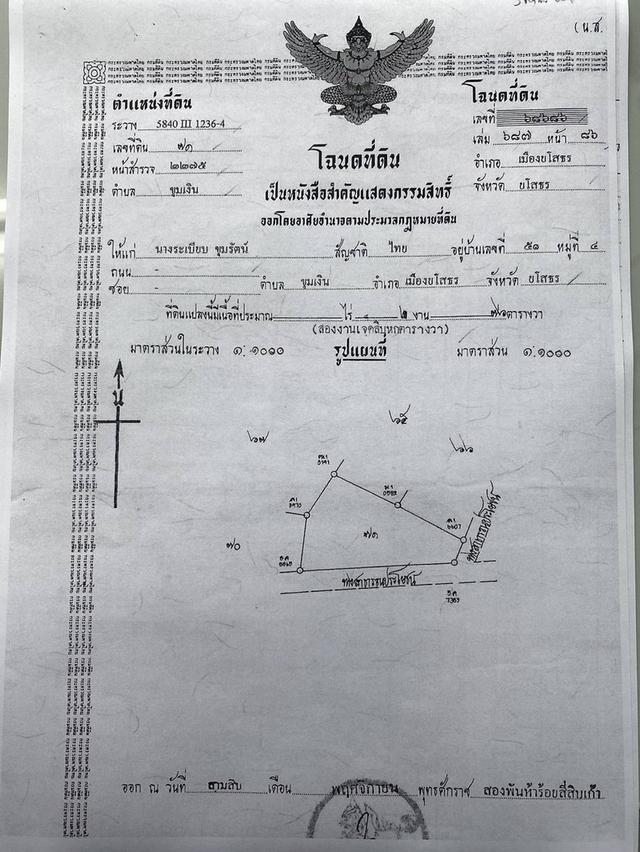 (น.ส.
ตำแหน่งที่ดิน
ระวาง 5840 III 1236-4
เลขที่ดิน ๗๑
หน้าสำรวจ ๒๒๗๕
ตำบล ขุมเงิน
โฉนดที่ดิน
เลขที่ ๖๘๖๘๖
เล่ม ๖๘๗ หน้า ๘๖
อำเภอ เมืองยโสธร
จังหวัด ยโสธร
โฉนดที่ดิน
เป็นหนังสือสำคัญแสดงกรรมสิทธิ์
ออกโดยอาศัยอำนาจตามประมวลกฎหมายที่ดิน
ให้แก่ นางระเบียบ ขุมรัตน์ สัญชาติ ไทย อยู่บ้านเลขที่ ๕๑ หมู่ที่ ๔
ถนน -
ซอย - ตำบล ขุมเงิน อำเภอ เมืองยโสธร จังหวัด ยโสธร
ที่ดินแปลงนี้มีเนื้อที่ประมาณ ไร่ ๒ งาน ๗๖ ตารางวา
(สองงานเจ็ดสิบหกตารางวา)
มาตราส่วนในระวาง ๑:๑๐๐๐ รูปแผนที่ มาตราส่วน ๑:๑๐๐๐
น
๖๗ ๖๕ ๖๖
๗๐ ๗๑
ทางสาธารณประโยชน์
ทางสาธารณประโยชน์
ออก ณ วันที่ สามสิบ เดือน พฤศจิกายน พุทธศักราช สองพันห้าร้อยสี่สิบเก้า